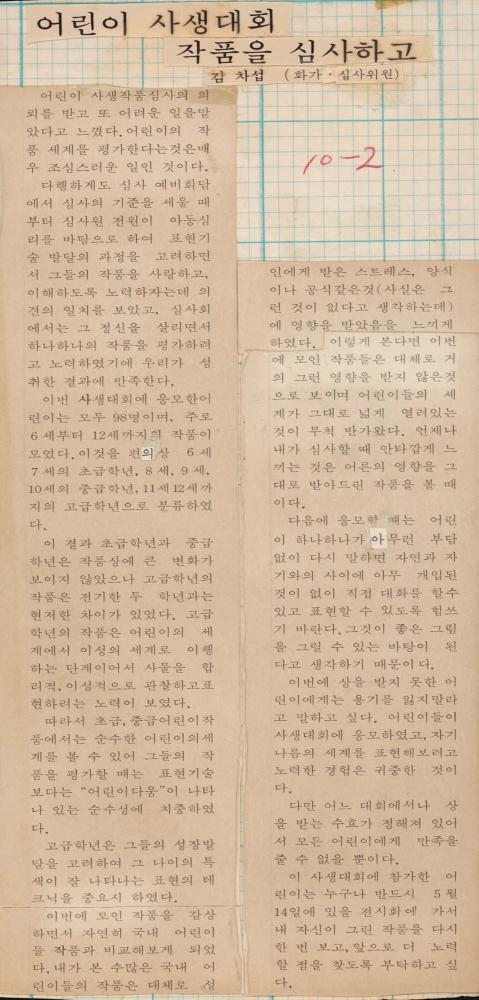 어린이 사생대회
작품을 심사하고
김 차섭 (화가·심사위원)
10-2
어린이 사생작품심사의 의
뢰를 받고 또 어려운 일을맡
았다고 느꼈다. 어린이의 작
품 세계를 평가한다는것은매
우 조심스러운 일인 것이다.
다행하게도 심사 예비회담
에서 심사의 기준을 세울 때
부터 심사원 전원이 아동심
리를 바탕으로 하여 표현기
술 발달의 과정을 고려하면
서 그들의 작품을 사랑하고,
이해하도록 노력하자는데 의
견의 일치를 보았고, 심사회
에서는 그 정신을 살리면서
하나하나의 작품을 평가하려
고 노력하였기에 우리가 성
취한 결과에 만족한다.
이번 사생대회에 응모한어
린이는 모두 98명이며, 주로
6세부터 12세까지의 작품이
모였다. 이것을 편의상 6세
7세의 초급학년, 8세, 9세,
10세의 중급학년, 11세 12세까
지의 고급학년으로 분류하였
다.
이 결과 초급학년과 중급
학년은 작품상에 큰 변화가
보이지 않았으나 고급학년의
작품은 전기한 두 학년과는
현저한 차이가 있었다. 고급
학년의 작품은 어린이의 세
계에서 이성의 세계로 이행
하는 단계이어서 사물을 합
리적, 이성적으로 관찰하고표
현하려는 노력이 보였다.
따라서 초급, 중급어린이작
품에서는 순수한 어린이의세
계를 볼 수 있어 그들의 작
품을 평가할 때는 표현기술
보다는 "어린이다움"이 나타
나 있는 순수성에 치중하였
다.
고급학년은 그들의 성장발
달을 고려하여 그 나이의 특
색이 잘 나타나는 표현의 테
크닉을 중요시 하였다.
이번에 모인 작품을 감상
하면서 자연히 국내 어린이
들 작품과 비교해보게 되었
다. 내가 본 수많은 국내 어
린이들의 작품은 대체로 성
인에게 받은 스트레스, 양식
이나 공식같은것(사실은 그
런 것이 없다고 생각하는데)
에 영향을 받았음을 느끼게
하였다. 이렇게 본다면 이번
에 모인 작품들은 대체로 거
의 그런 영향을 받지 않은것
으로 보이며 어린이들의 세
계가 그대로 넓게 열려있는
것이 무척 반가왔다. 언제나
내가 심사할 때 안타깝게 느
끼는 것은 어른의 영향을 그
대로 받아드린 작품을 볼 때
이다.
다음에 응모할 때는 어린
이 하나하나가 아무런 부담
없이 다시 말하면 자연과 자
기와의 사이에 아무 개입된
것이 없이 직접 대화를 할수
있고 표현할 수 있도록 힘쓰
기 바란다. 그것이 좋은 그림
을 그릴 수 있는 바탕이 된
다고 생각하기 때문이다.
이번에 상을 받지 못한 어
린이에게는 용기를 잃지말라
고 말하고 싶다. 어린이들이
사생대회에 응모하였고, 자기
나름의 세계를 표현해보려고
노력한 경험은 귀중한 것이
다.
다만 어느 대회에서나 상
을 받는 수효가 정해져 있어
서 모든 어린이에게 만족을
줄 수 없을 뿐이다.
이 사생대회에 참가한 어
린이는 누구나 반드시 5월
14일에 있을 전시회에 가서
내 자신이 그린 작품을 다시
한 번 보고, 앞으로 더 노력
할 점을 찾도록 부탁하고 싶
다.